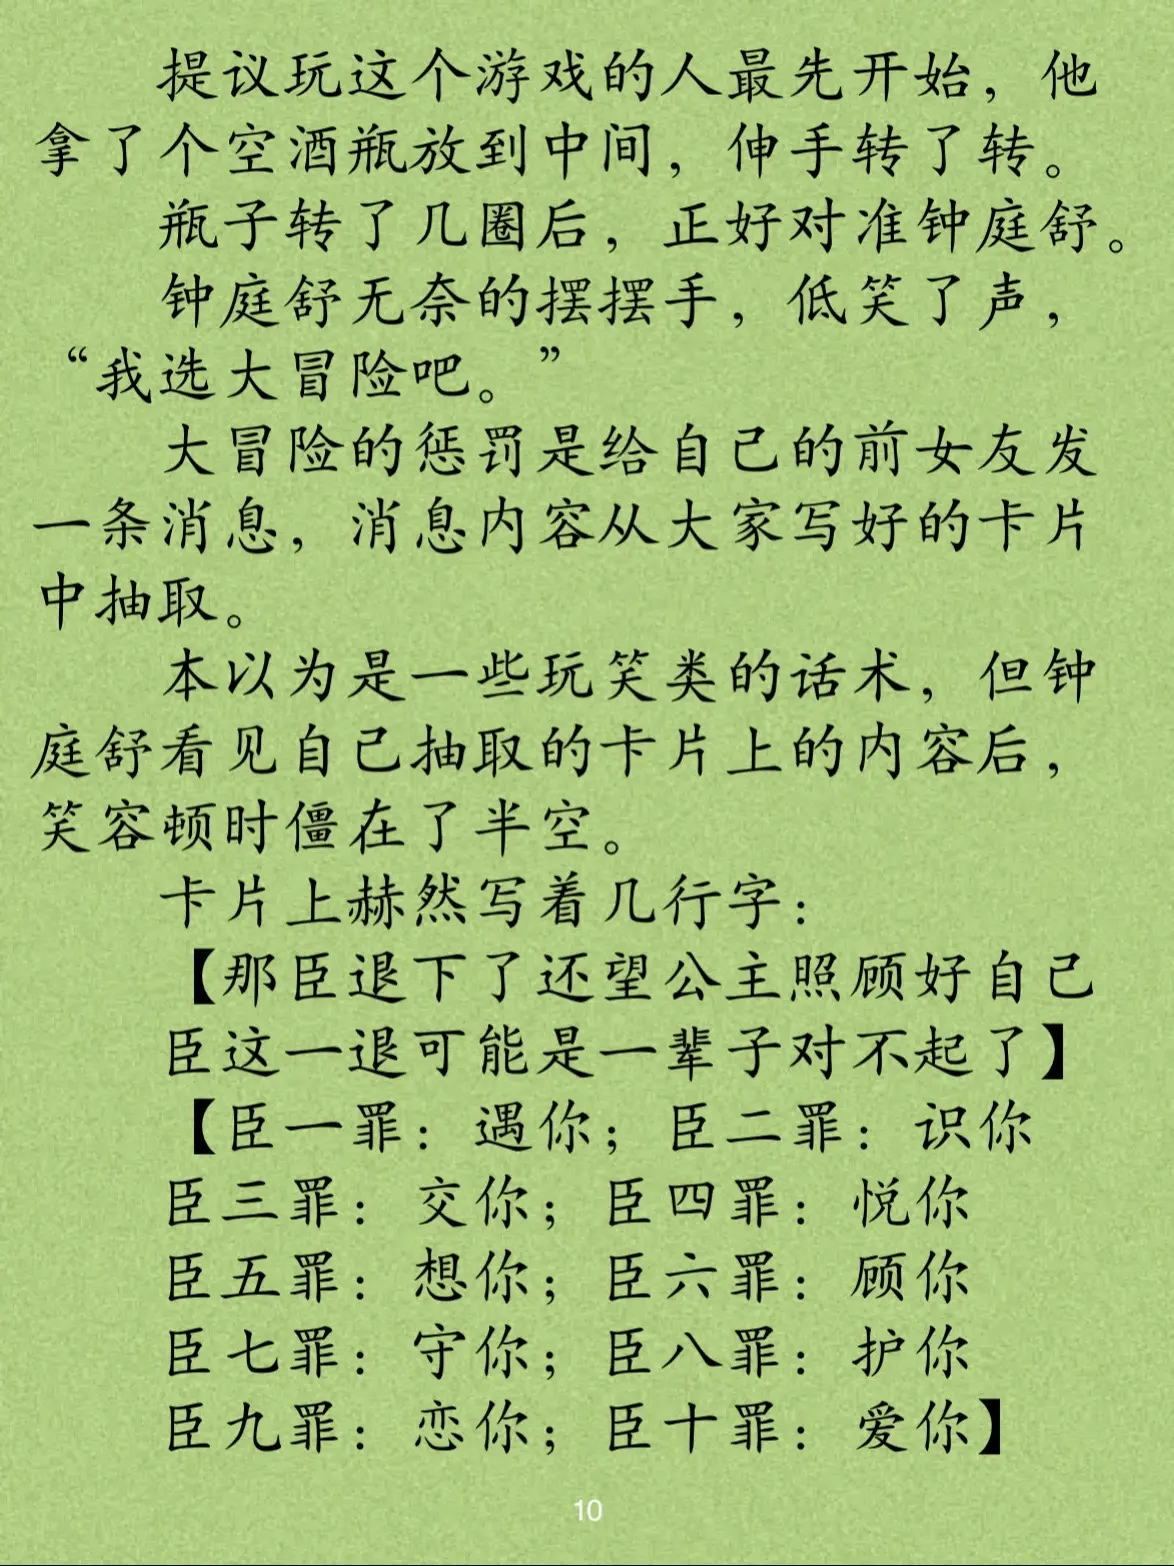 提议玩这个游戏的人最先开始，他
拿了个空酒瓶放到中间，伸手转了转。
瓶子转了几圈后，正好对准钟庭舒。
钟庭舒无奈的摆摆手，低笑了声，
“我选大冒险吧。”
大冒险的惩罚是给自己的前女友发
一条消息，消息内容从大家写好的卡片
中抽取。
本以为是一些玩笑类的话术，但钟
庭舒看见自己抽取的卡片上的内容后，
笑容顿时僵在了半空。
卡片上赫然写着几行字：
【那臣退下了还望公主照顾好自己
臣这一退可能是一辈子对不起了】
【臣一罪：遇你；臣二罪：识你
臣三罪：交你；臣四罪：悦你
臣五罪：想你；臣六罪：顾你
臣七罪：守你；臣八罪：护你
臣九罪：恋你；臣十罪：爱你】
10